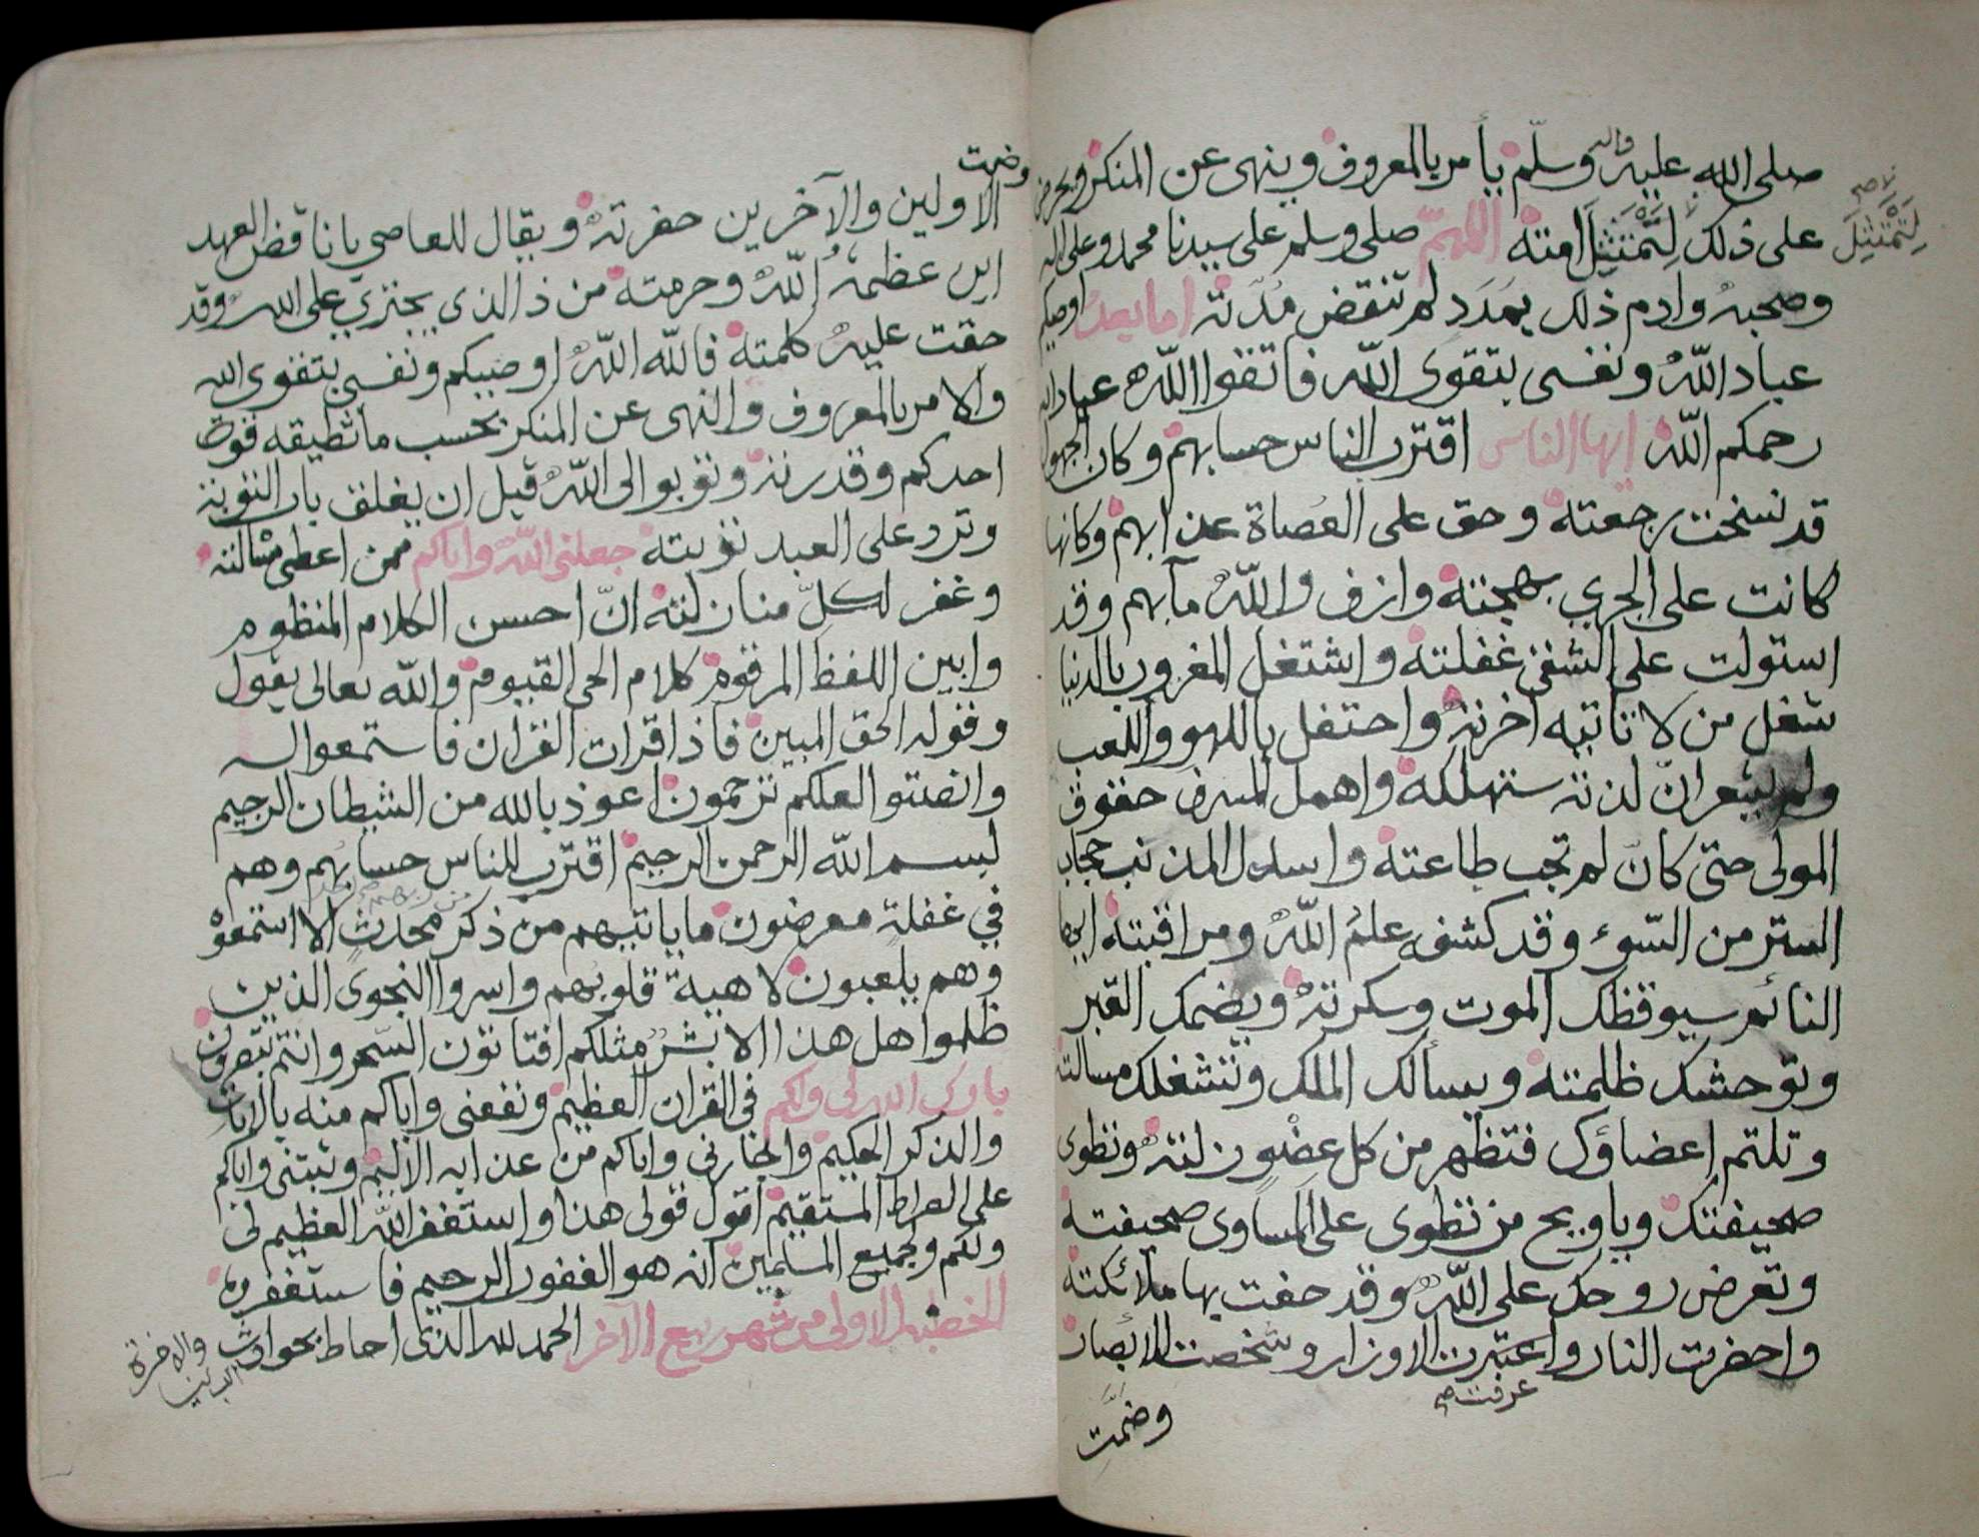 صلى الله عليه واله وسلم يأمر بالمعروف وينهى عن المنكر ويحرض
على ذلك لتمتثل امته اللهم صلى وسلم على سيدنا محمد وعلى اله
لتمتثل
وصحبه وادم ذلك بمدد لم تنقض مدته اما بعد اوصيكم
عباد الله ونفسى بتقوى الله فاتقوا الله عباد الله
رحمكم الله ايها الناس اقترب للناس حسابهم وكان الجهول
قد نسخت رجعته وحق على العصاة عذابهم وكانها
كانت على الجري بهجته وازف والله مآبهم وقد
استولت على الشقى غفلته واشتغل المغرور بالدنيا
شغل من لا تاتيه آخرته واحتفل باللهو واللعب
ولم يشعر ان لذته ستهلكه واهمل المسرف حقوق
المولى حتى كان لم تجب طاعته واسدل المذنب حجاب
الستر من السوء وقد كشفه علم الله ومراقبته ايها
النائم سيوقظك الموت وسكرته ويضمك القبر
وتوحشك ظلمته ويسألك الملك وتشغلك مسالته
وتلتم اعضاؤك فتظهر من كل عضو زلته وتطوى
صحيفتك وياويح من تطوى على المساوى صحيفته
وتعرض روحك على الله وقد حفت بها ملائكته
واحضرت النار واعتبرت الاوزار وشخصت الابصار
عرفت صح
وضمت
وضمت
الاولين والآخرين حفرته ويقال للعاصي يا ناقض العهد
اين عظمة الله وحرمته من ذا الذى يجتري على الله وقد
حقت عليه كلمته فالله الله اوصيكم ونفسى بتقوى الله
والامر بالمعروف والنهى عن المنكر بحسب ما تطيقه قوت
احدكم وقدرته وتوبوا الى الله قبل ان يغلق باب التوبة
وترد على العبد توبته جعلنى الله واياكم ممن اعطى مسالته
وغفر لكل منا زلته ان احسن الكلام المنظوم
وابين اللفظ المرقوم كلام الحى القيوم والله تعالى يقول
وقوله الحق المبين فاذا قرات القران فاستمعوا له
وانصتوا لعلكم ترحمون اعوذ بالله من الشيطان الرجيم
بسم الله الرحمن الرحيم اقترب للناس حسابهم وهم
في غفلة معرضون ما ياتيهم من ذكر من ربهم محدث الا استمعوه
وهم يلعبون لاهية قلوبهم واسروا النجوى الذين
ظلموا هل هذا الا بشر مثلكم افتاتون السحر وانتم تبصرون
بارك الله لى ولكم فى القران العظيم ونفعنى واياكم منه بالايات
والذكر الحكيم واجارنى واياكم من عذابه الاليم وثبتنى واياكم
على الصراط المستقيم اقول قولى هذا واستغفر الله العظيم لى
ولكم ولجميع المسلمين انه هو الغفور الرحيم فاستغفروه
الخطبة الاولى من شهر ربيع الآخر الحمد لله الذى احاط بحوادث
والاخرة